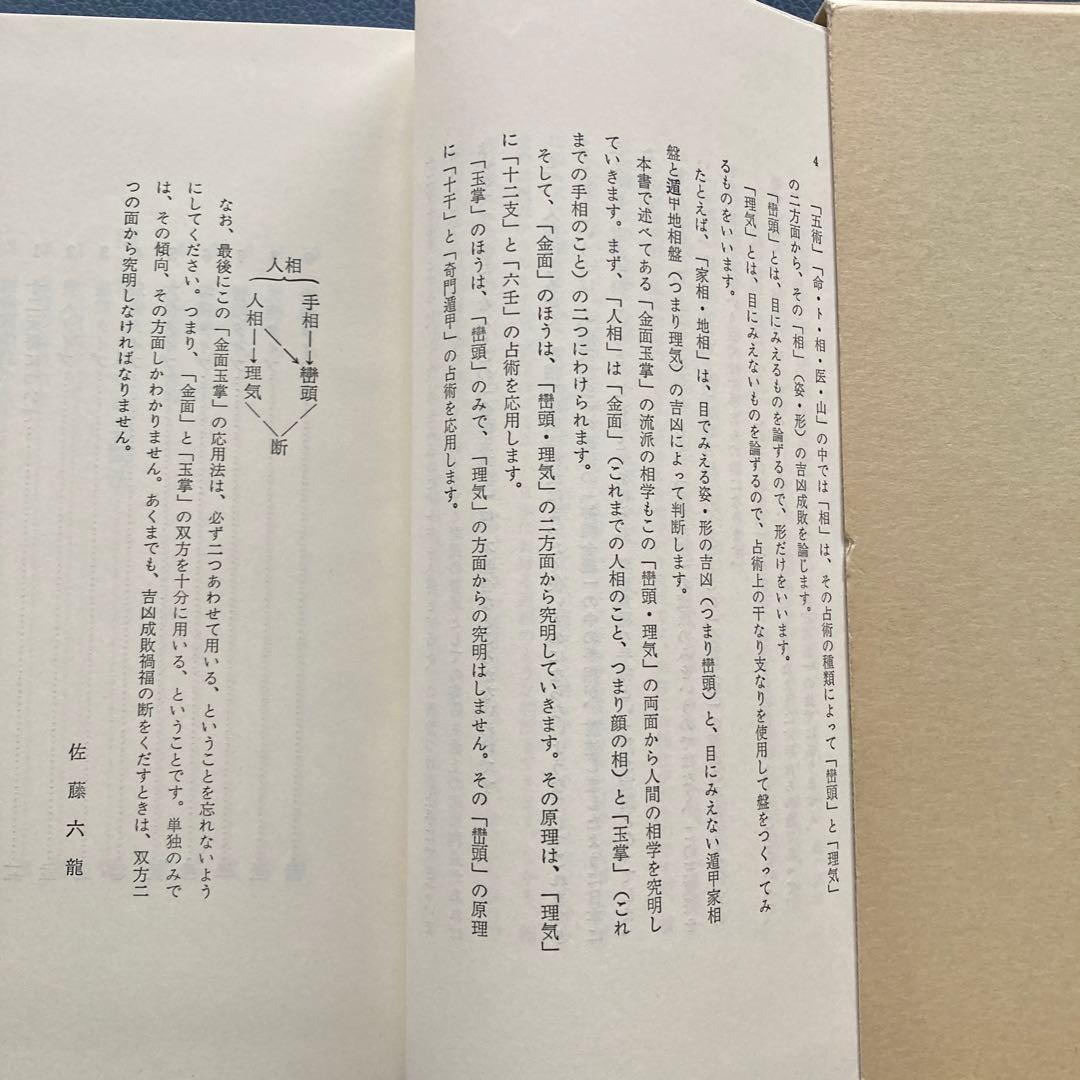 4
「五術」「命・卜・相・医・山」の中では「相」は、その占術の種類によって「巒頭」と「理気」
の二方面から、その「相」(姿・形)の吉凶成敗を論じます。
「巒頭」とは、目にみえるものを論ずるので、形だけをいいます。
「理気」とは、目にみえないものを論ずるので、占術上の干なり支なりを使用して盤をつくってみ
るものをいいます。
たとえば、「家相・地相」は、目でみえる姿・形の吉凶(つまり巒頭)と、目にみえない遁甲家相
盤と遁甲地相盤(つまり理気)の吉凶によって判断します。
本書で述べてある「金面玉掌」の流派の相学もこの「巒頭・理気」の両面から人間の相学を究明し
ていきます。まず、「人相」は「金面」(これまでの人相のこと、つまり顔の相)と「玉掌」(これ
までの手相のこと)の二つにわけられます。
そして、「金面」のほうは、「巒頭・理気」の二方面から究明していきます。その原理は、「理気」
に「十二支」と「六壬」の占術を応用します。
「玉掌」のほうは、「巒頭」のみで、「理気」の方面からの究明はしません。その「巒頭」の原理
に「十干」と「奇門遁甲」の占術を応用します。
人相
手相→巒頭
人相→理気
断
なお、最後にこの「金面玉掌」の応用法は、必ず二つあわせて用いる、ということを忘れないよう
にしてください。つまり、「金面」と「玉掌」の双方を十分に用いる、ということです。単独のみで
は、その傾向、その方面しかわかりません。あくまでも、吉凶成敗禍福の断をくだすときは、双方二
つの面から究明しなければなりません。
佐藤六龍